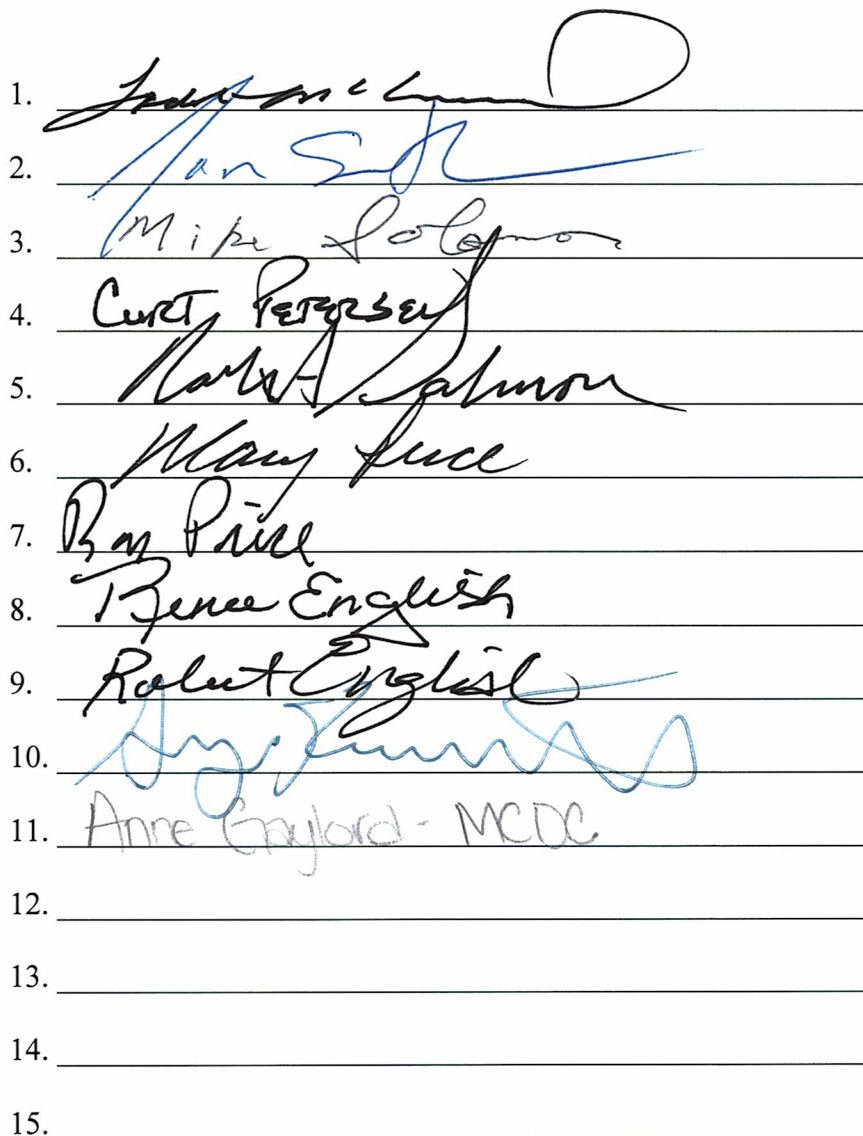 1.
2. Jan
3. Mike Solomon
4. CURT PETERSEN
5. Salmon
6. Mary Price
7. Price
8. Renee English
9. Robert English
10.
11. Anne Gaylord - MCDC
12.
13.
14.
15.